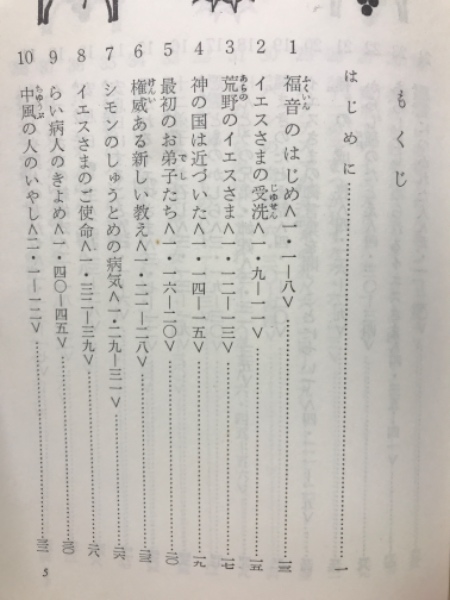 もくじ
はじめに……………一
1 福音のはじめ<一・一―八>……………一三
2 イエスさまの受洗<一・九―一一>……………一五
3 荒野のイエスさま<一・一二―一三>……………一七
4 神の国は近づいた<一・一四―一五>……………一九
5 最初のお弟子たち<一・一六―二〇>……………二〇
6 権威ある新しい教え<一・二一―二八>……………二三
7 シモンのしゅうとめの病気<一・二九―三一>……………二六
8 イエスさまのご使命<一・三二―三九>……………二八
9 らい病人のきよめ<一・四〇―四五>……………三〇
10 中風の人のいやし<二・一―一二>……………
5